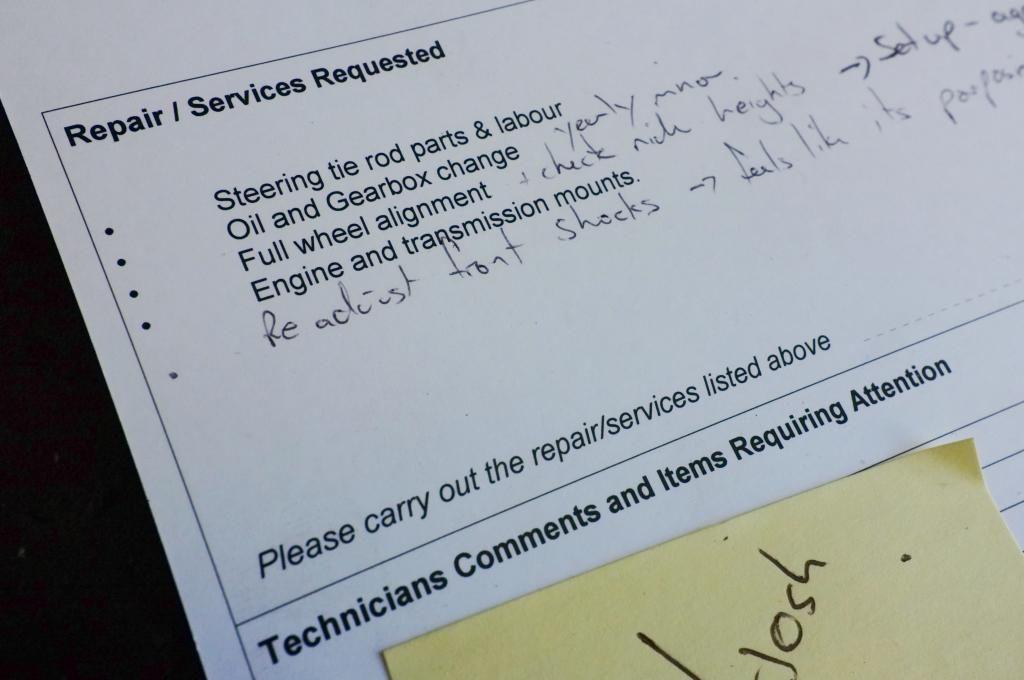 Repair / Services Requested
Steering tie rod parts & labour
Oil and Gearbox change yearly minor.
Full wheel alignment + check ride heights → Setup -
Engine and transmission mounts.
Re adjust front shocks → feels like its
Please carry out the repair/services listed above
Technicians Comments and Items Requiring Attention
Josh